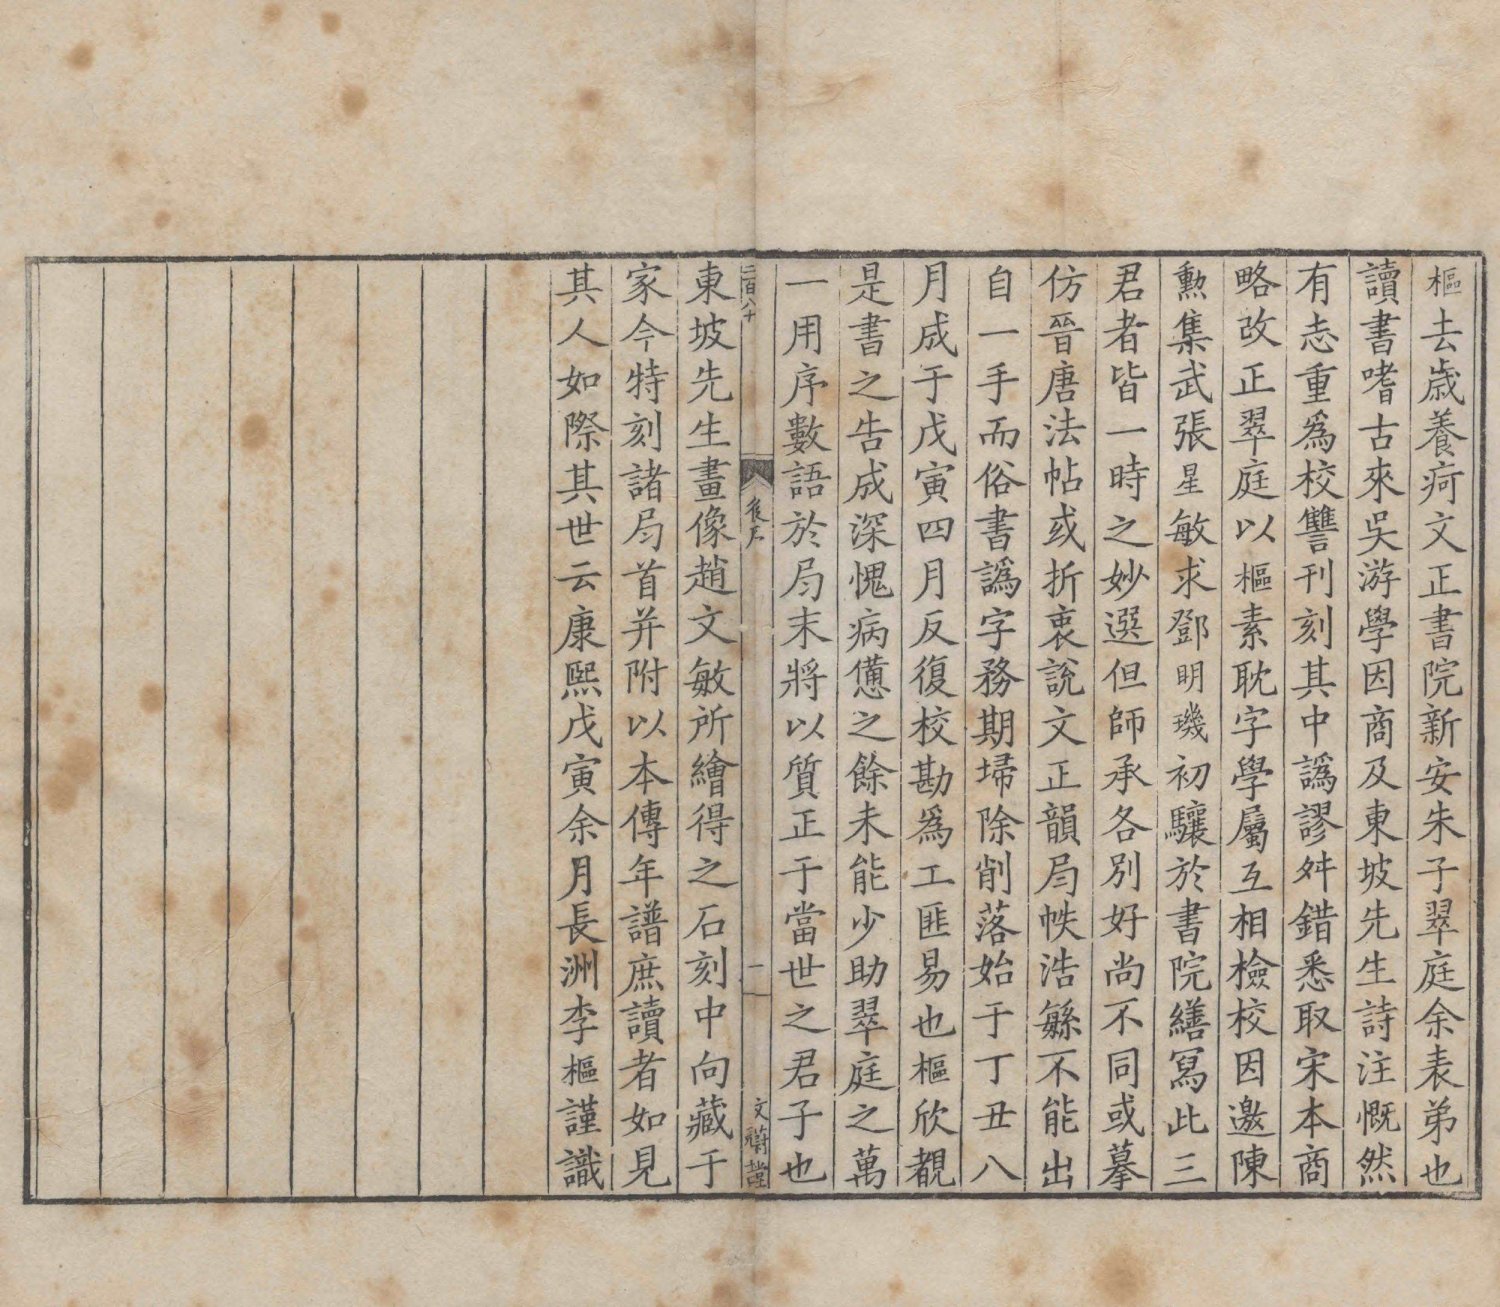 樞去歲養疴文正書院新安朱子翠庭余表弟也
讀書嗜古來吳游學因商及東坡先生詩注慨然
有志重爲校讐刊刻其中譌謬舛錯悉取宋本商
略改正翠庭以樞素耽字學屬互相檢校因邀陳
勲集武張星敏求鄧明璣初驤於書院繕寫此三
君者皆一時之妙選但師承各別好尚不同或摹
仿晉唐法帖或折衷說文正韻局帙浩繇不能出
自一手而俗書譌字務期埽除削落始于丁丑八
月成于戊寅四月反復校勘爲工匪易也樞欣覩
是書之告成深愧病憊之餘未能少助翠庭之萬
一用序數語於局末將以質正于當世之君子也
二百八十
後序
一
文蔚堂
東坡先生畫像趙文敏所繪得之石刻中向藏于
家今特刻諸局首并附以本傳年譜庶讀者如見
其人如際其世云康熙戊寅余月長洲李樞謹識